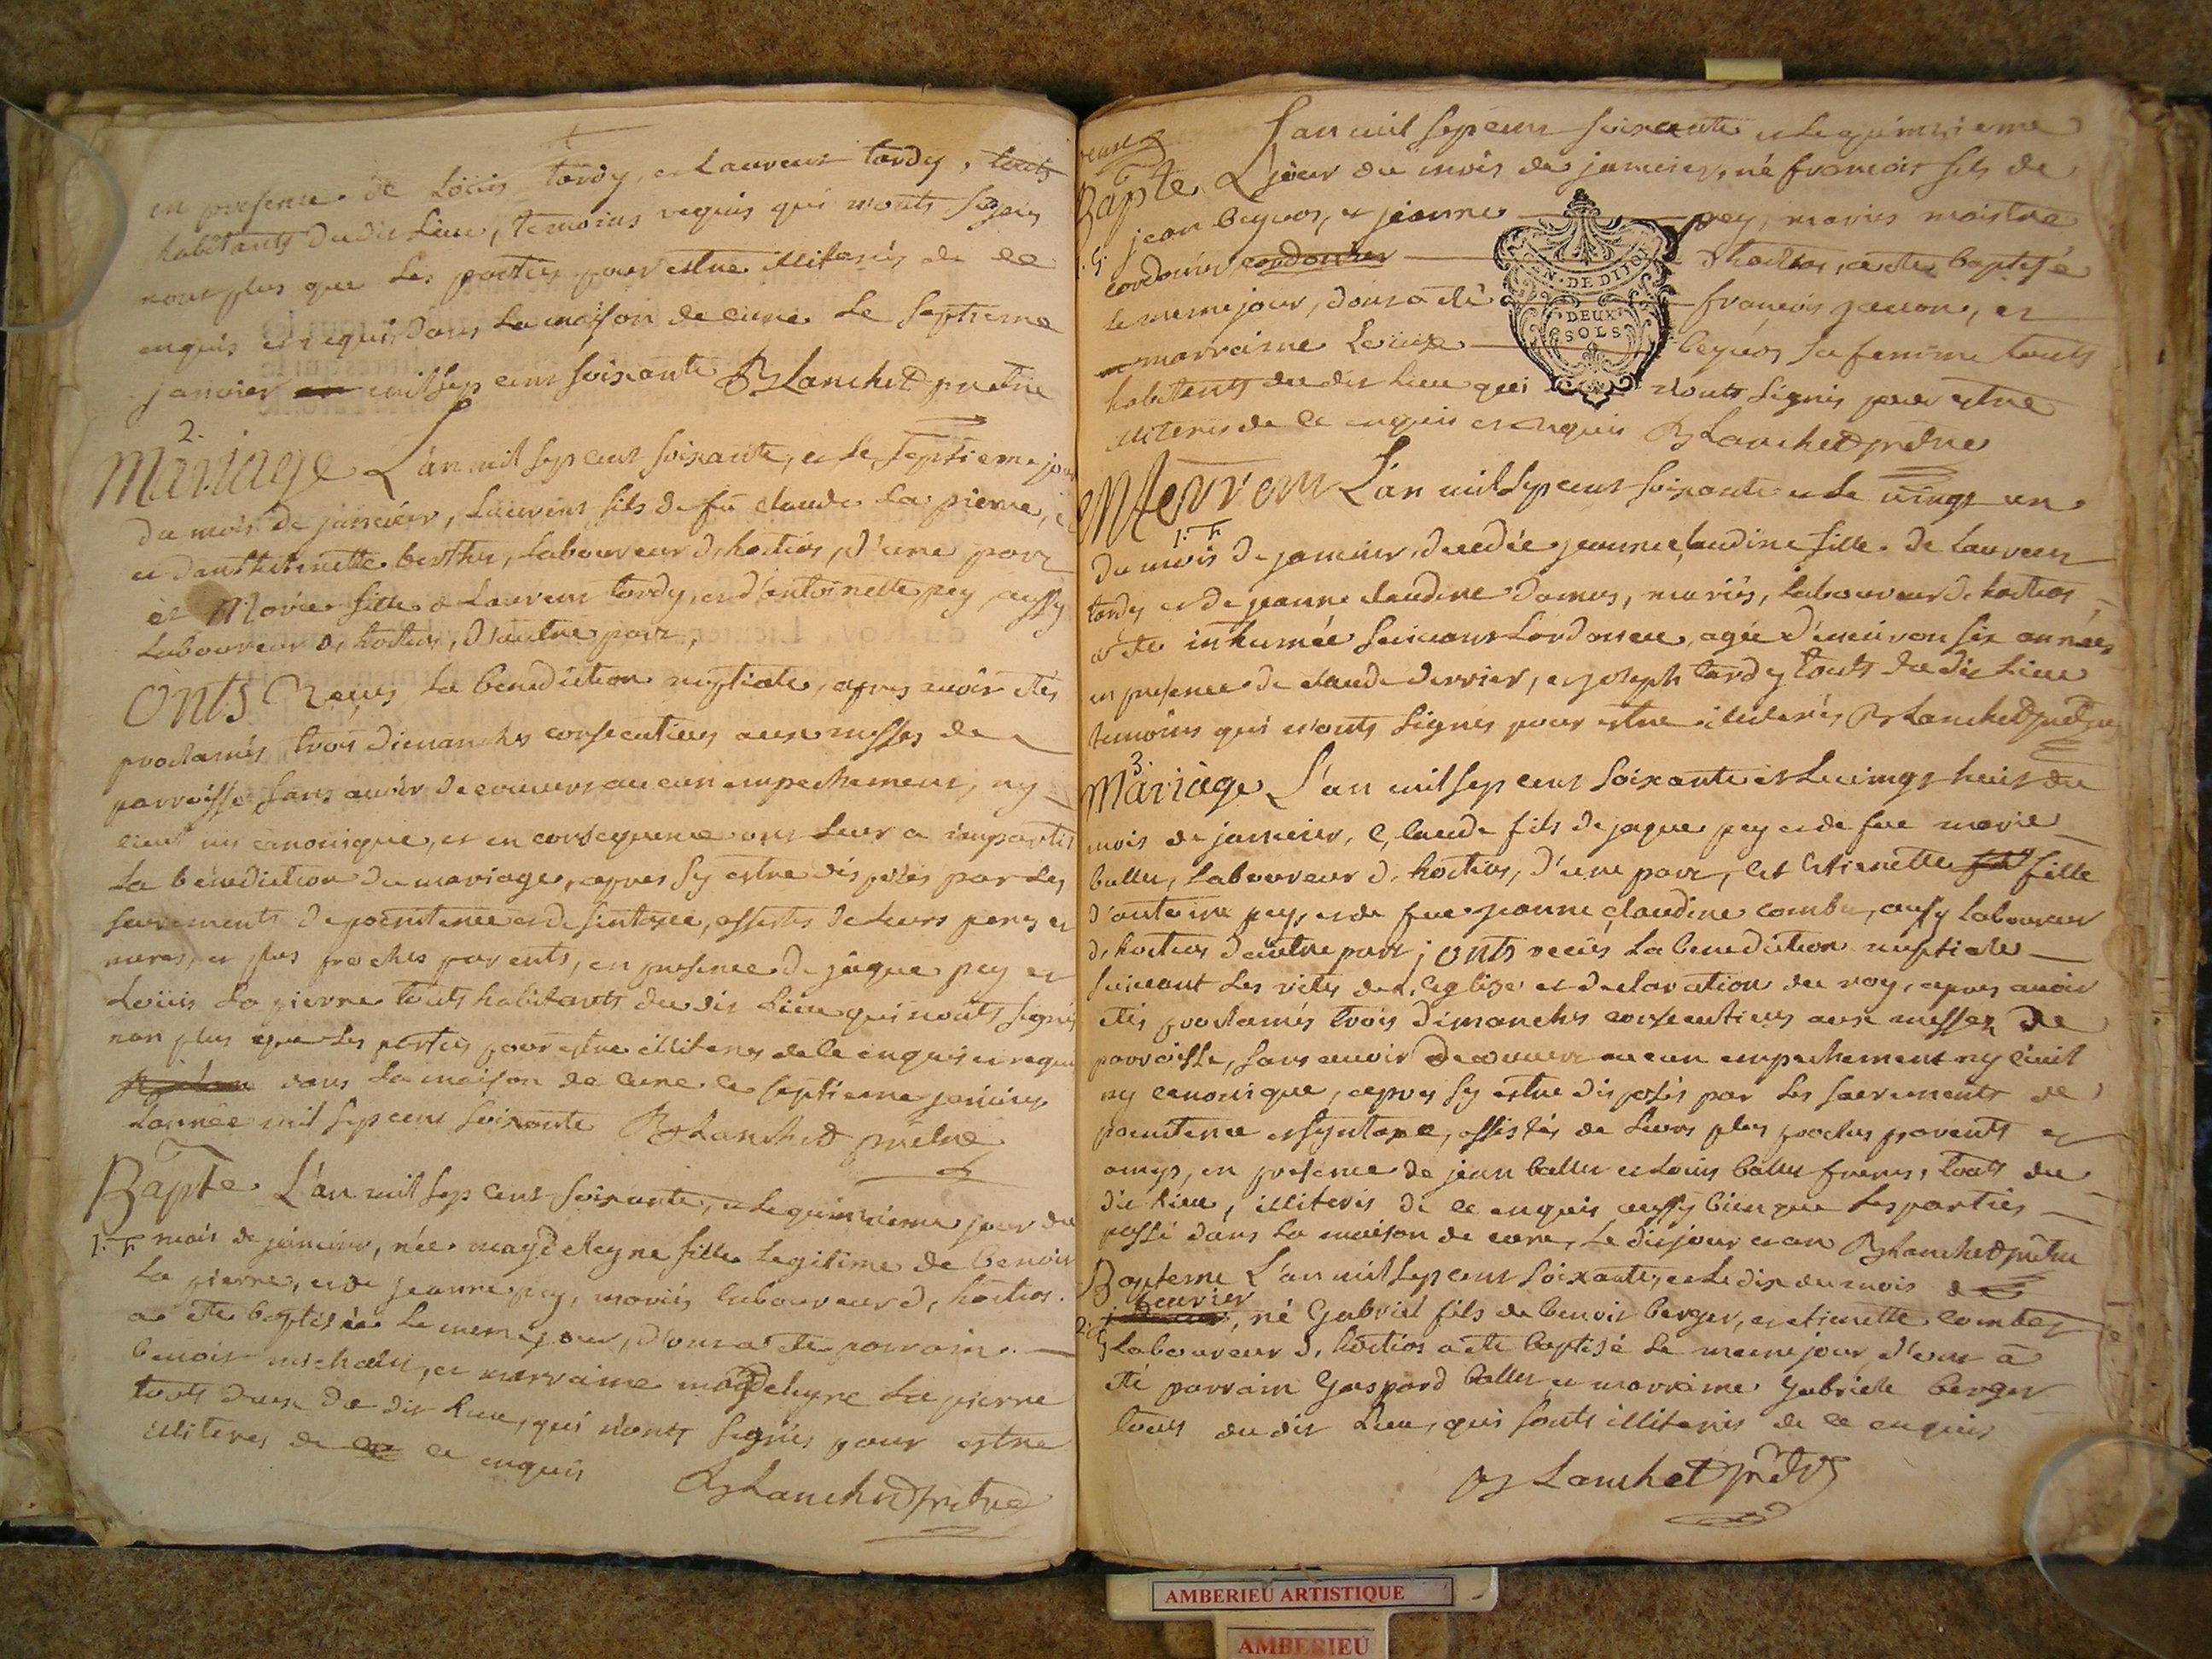 en presence de Loüis tardy, et Laurent tardy, touts
habitants dudit Lieu, temoins requis qui n'onts signés
nomplus que Les parties pour estre illiterés de ce
enquis et requis dans La maison de cure Le septieme
janvier mil sep cent soixante Blanchet prêtre
2.
Mariage L'an mil sep cent soixante, et le septieme jour
du mois de janvier, Laurent fils de fû claude La pierre,
et d'anthoinette berthet, Laboureur d'hostias, d'une part
et Marie fille de Laurent tardy, et d'antoinette pey aussy
Laboureur d'hostias, d'autre part,
Onts Reçus La benediction nuptiale, apres avoir étés
proclamés trois dimanches consecutives aux messes de
parroisse sans avoir decouvers aucun empechement, ny
civil ny canonique, et en consequence ont Leur a imparti
La bénédiction du mariage, apres sy estre disposés par Les
sacrements de poenitence et de sintaxe, assistés de Leurs peres et
meres, et plus proches parents, en presence de jàque pey et
Loüis La pierre touts habitants du dit Lieu qui n'onts signés
non plus que Les parties pour estre illiteres de ce enquis et requis
dans La maison de cure ce septieme janvier
L'année mil sep cent soixante Blanchet prêtre
Bapte. L'an mil sep cent soixante, et le quinzieme jour du
1. F mois de janvier, née magdeleyne fille Legitime de benoit
La pierre, et de jeanne pey, mariés laboureur d'hostias.
a été baptisée Le meme jour, dont a été parrain
benoit michalet, et marraine magdeleyne La pierre
touts deux du dit Lieu, qui n'onts signés pour estre
illiteres de ce enquis
Blanchet prêtre
L'an mil sep cent soixante et le quinzieme
Bapte jour du mois de janvier, né francois fils de
jean beguos, et jeanne pey, mariés maistre
1. G. cordonier cordonier d'hostias, a été baptisé
Le meme jour, dont a été françois jacon, et
marraine Loüise beguos sa femme touts
habitants du dit Lieu qui n'onts signés pour estre
illiterés de ce enquis et requis Blanchet prêtre
GEN. DE DIJON
DEUX
SOLS
Mort L'an mil sep cent soixante et Le vingt un
1. F.
du mois de janvier, decedée jeanne claudine fille de Laurent
tardy et de jeanne claudine damus, mariés, laboureur d'hostias
a été inhumée suivant L'ordonnce, agée d'environ six années
en presence de claude dervier, et joseph tardy touts du dit Lieu
temoins qui n'onts signés pour estre illiterés Blanchet prêtre
3.
Mariage L'an mil sep cent soixante et Le vingt huit du
mois de janvier, Claude fils de jaque pey et de feue marie
ballet, Laboureur d'hostias, d'une part, Et Etienette fille
d'antoine pey, et de feue jeanne claudine combet, aussy Laboureur
d'hostias d'autre part, onts recus La benediction nuptiale
suivant Les rites de L'eglize et declaration du roy, apres avoir
étés proclamés trois dimanches consecutives aux messes de
parroisse, sans avoir decouvert aucun empechement ny civil
ny canonique, apres sy estre disposés par Les sacrements de
poenitence et syntaxe, assistés de Leurs plus proches parents et
amys, en presence de jean ballet et Louis ballet freres, touts du
dit Lieu, illiterés de ce enquis aussy bien que Les parties
passé dans La maison de cure, Le dit jour et an Blanchet prêtre
Bapteme L'an mil sep cent soixante, et Le dix du mois de
fevrier
2. G, né Gabriel fils de benoit berger, et etienette combet
Laboureur d'hostias a été baptisé Le meme jour, dont a
été parrain Gaspard ballet et marraine Gabrielle berger
touts du dit Lieu, qui sonts illiterés de ce enquis
Blanchet prêtre
AMBERIEU ARTISTIQUE
AMBERIEU